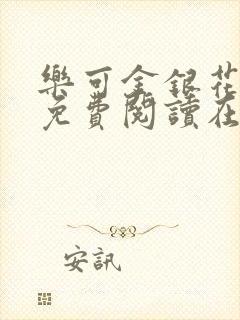 樂可金銀花
免費閱讀在
安訊